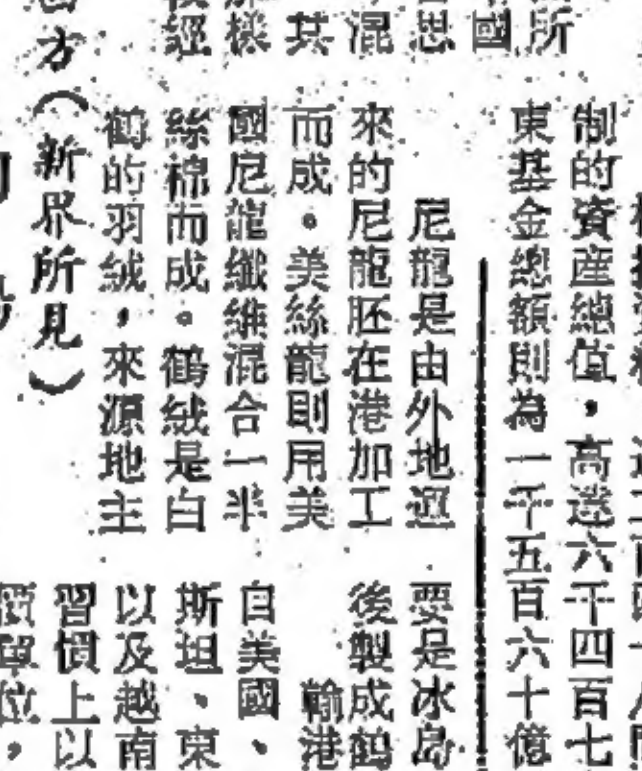 所
國
思
混
其
樣
經
方（新界所見）
制的資產總值，高達六千四百七
東基金總額則為一千五百六十億
尼龍是由外地運
來的尼龍胚在港加工
而成。美絲龍則用美
國尼龍纖維混合一半
絲棉而成。鶴絨是白
鶴的羽絨，來源地主
要是冰島
後製成鶴
輸港
自美國、
斯坦、東
以及越南
習慣上以
單位，